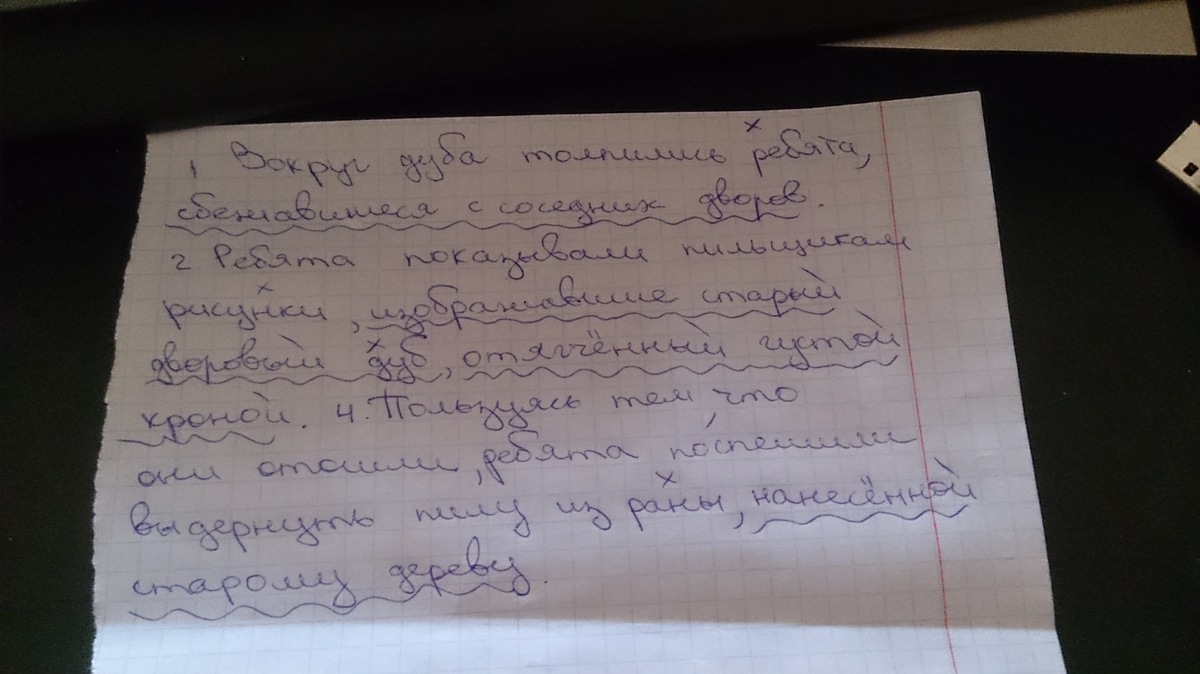 1. Вокруг дуба толпились ребята,
сбежавшиеся с соседних дворов.
2. Ребята показывали пильщикам
рисунки, изображавшие старый
дворовый дуб, отягчённый густой
кроной. 4. Пользуясь тем, что
они отошли, ребята поспешили
выдернуть пилу из раны, нанесённой
старому дереву.